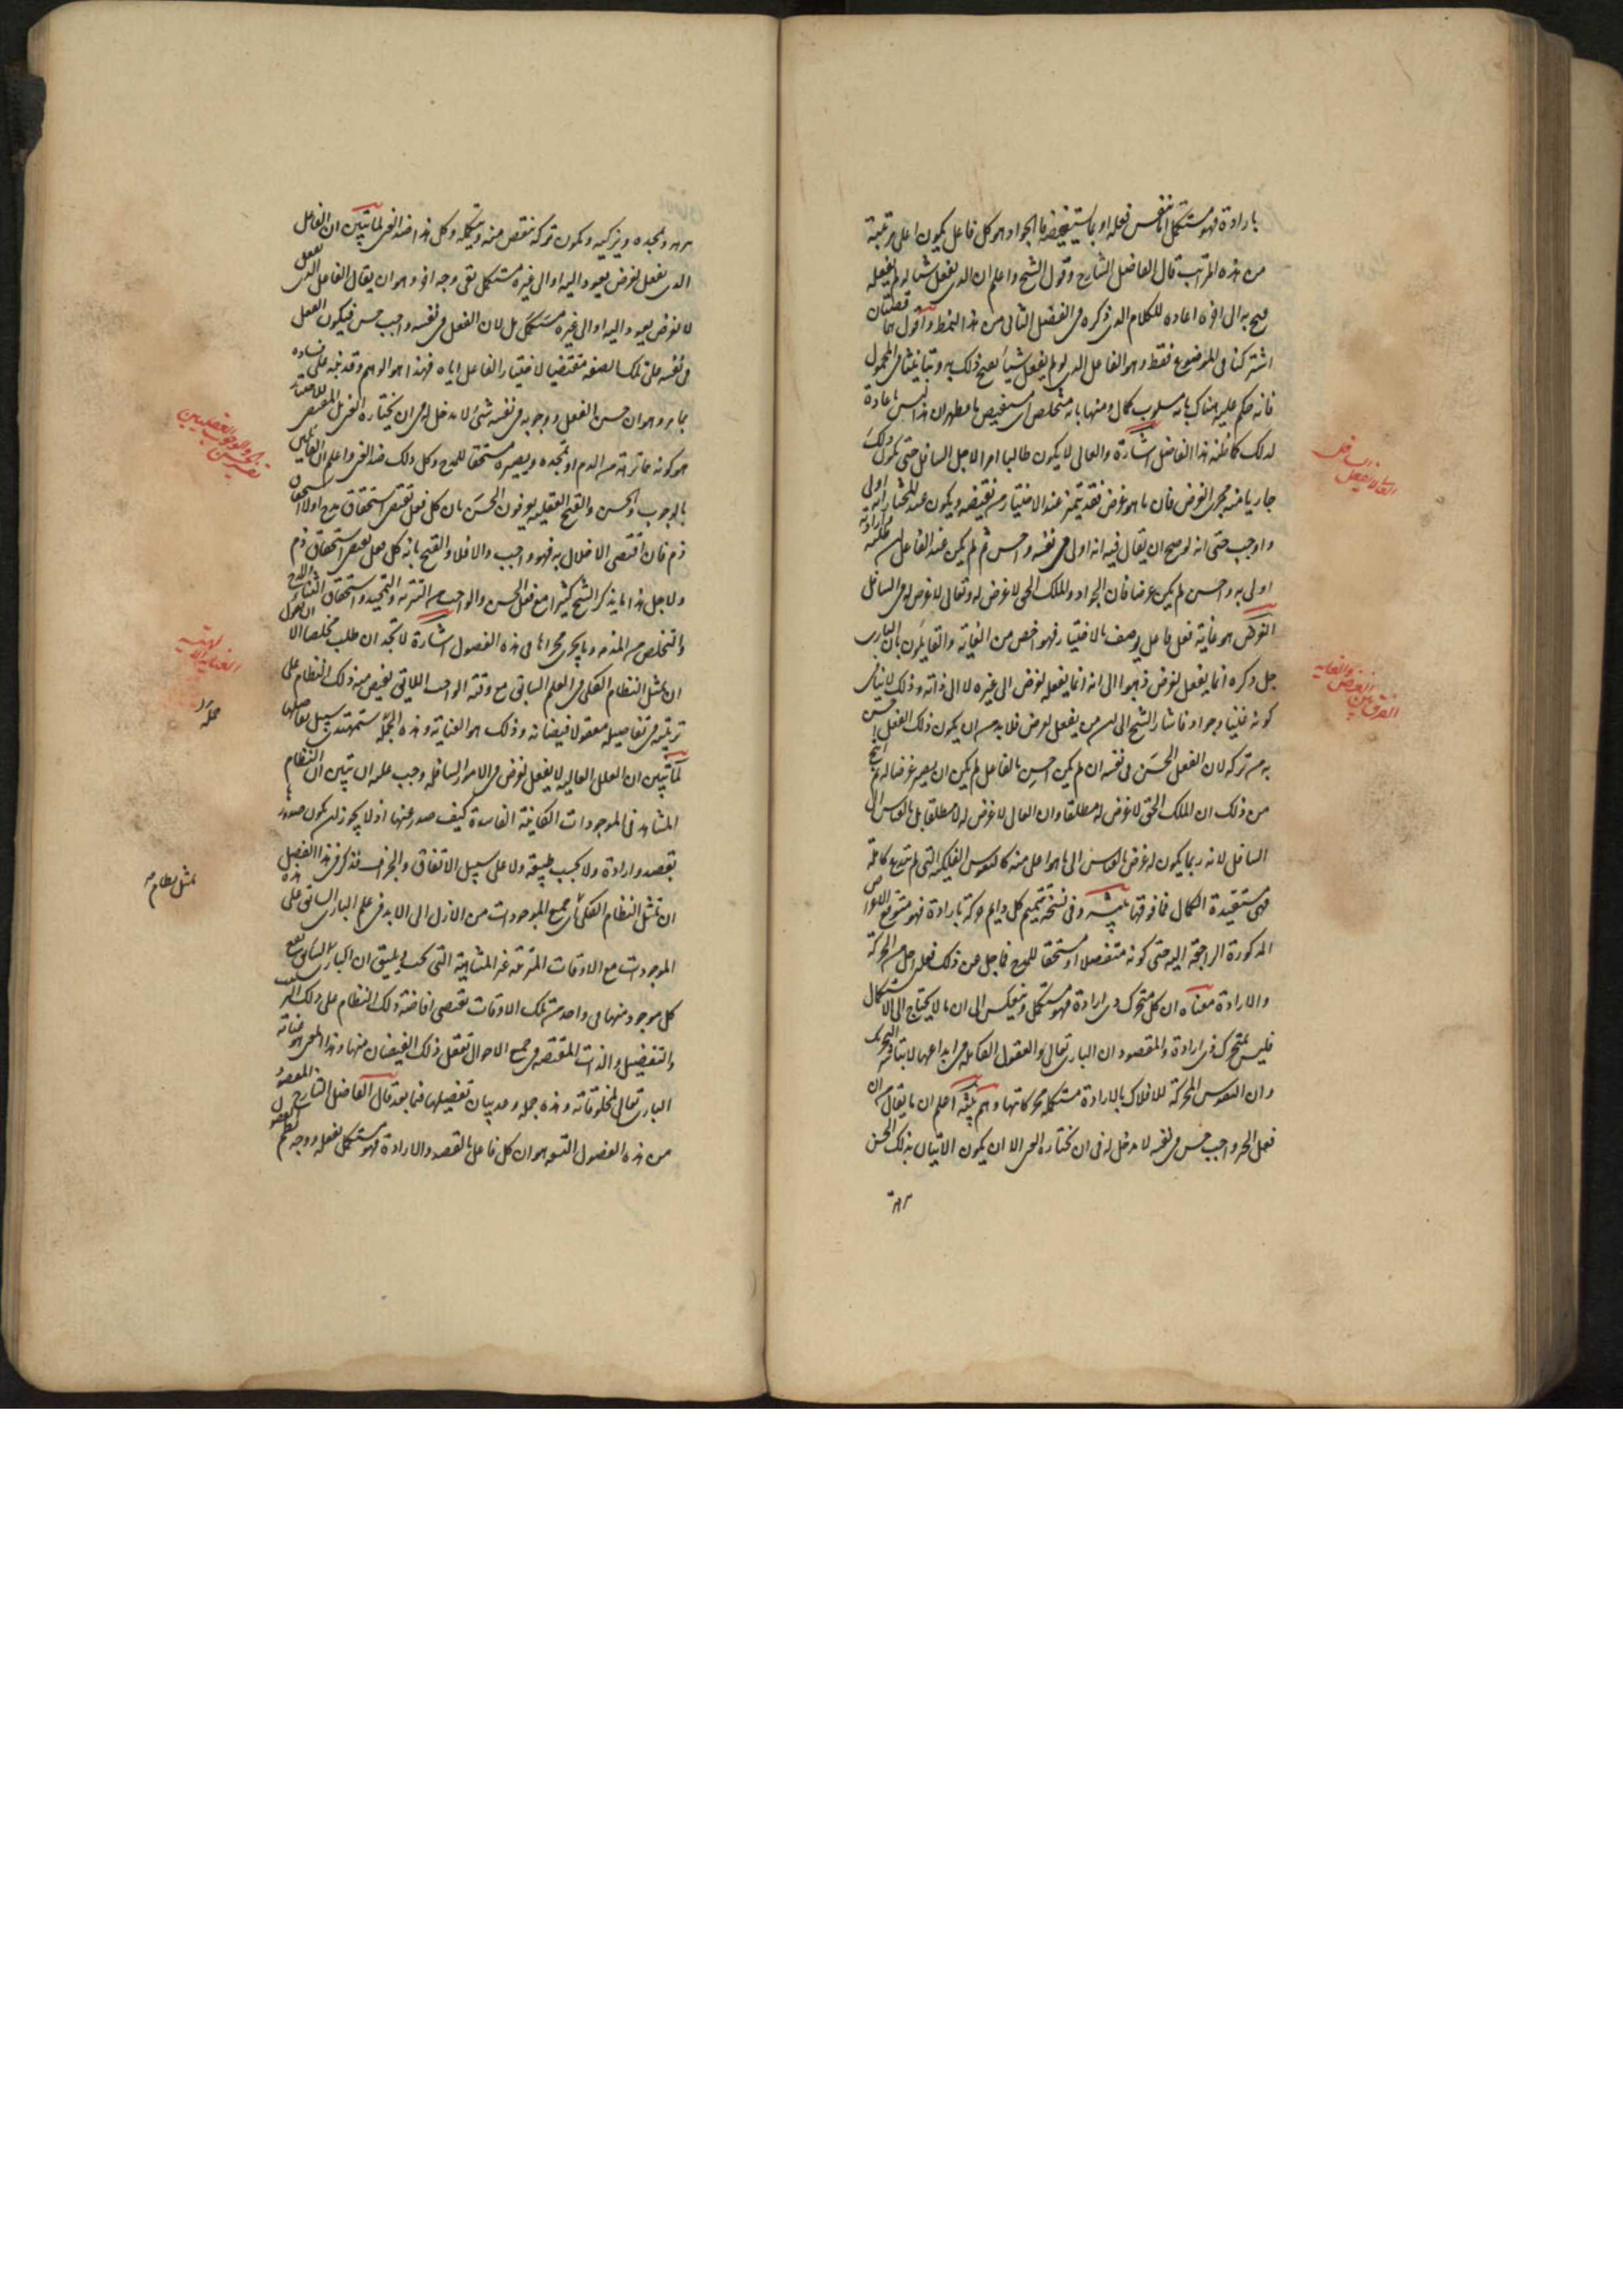 بارادة فهو مستكمل اما بنفس فعله او بما يستفيضه فالجواد هو كل فاعل يكون اعلى مرتبة
من هذه المراتب قال الفاضل الشارح وقول الشيخ واعلم ان الذى يفعل شيا لو لم يفعله
قبح به الى اخره اعاده للكلام الذى ذكره فى الفصل الثانى من هذا النمط واقول هما قضيتان
اشتركتا فى الموضوع فقط وهو الفاعل الذى لو لم يفعل شيأ لقبح ذلك به وتباينتا فى المحمول
فانه حكم عليه هناك بانه مسلوب كمال ومنها بانه متخلص او مستفيض فاظهر ان هذا ليس باعادة
لذلك كما ظنه هذا الفاضل اشارة والعالى لا يكون طالبا امرا لاجل السافل حتى يكون ذلك
جاريا منه مجرى الغرض فان ما هو غرض فقد يتميز عند الاختيار من نقيضه ويكون عند المختار انه اولى
واوجب حتى انه لو صح ان يقال فيه انه اولى فى نفسه واحسن ثم لم يكن عند الفاعل ان طلبه وارادته
اولى به واحسن لم يكن غرضا فان الجواد والملك الحق لا غرض له وتعالى لا غرض له فى السافل
الغرض هو غاية فعل فاعل يوصف بالاختيار فهو اخص من الغاية والقايلون بان البارى
جل ذكره انما يفعل لغرض ذهبوا الى انه انما يفعله لغرض الى غيره لا الى ذاته وذلك لا ينافى
كونه غنيا وجوادا فاشار الشيخ الى ان من يفعل لغرض فلا بد من ان يكون ذلك الفعل احسن
به من تركه لان الفعل الحسن فى نفسه ان لم يكن احسن بالفاعل لم يكن ان يصير غرضا له ثم انتج
من ذلك ان الملك الحق لا غرض له مطلقا وان العالى لا غرض له لا مطلقا بل بالقياس الى
السافل لانه ربما يكون له غرض بالقياس الى ما هو اعلى منه كالنفوس الفلكية التى لم تبدع كاملة
فهى مستفيدة الكمال مما فوقها تنبيه وفى نسخة تتميم كل دايم حركة بارادة فهو متوقع الاغراض
المذكورة الراجعة اليه حتى كونه متفضلا او مستحقا للمدح فاجل عن ذلك فعله اجل من الحركة
والارادة معناه ان كل متحرك ذى ارادة فهو مستكمل وينعكس الى ان ما لا يحتاج الى الاستكمال
فليس بمتحرك ذى ارادة والمقصود ان البارى تعالى والعقول الكاملة فى ابداعها لا يباشر التحريك
وان النفوس المحركة للافلاك بالارادة مستكملة بحركاتها وهم وتنبيه اعلم ان ما يقال من ان
فعل الخير واجب حسن فى نفسه لا مدخل له فى ان يختاره الغنى الا ان يكون الاتيان بذلك الحسن
العالى لا يفعل لاجل السافل
الفرق بين الغرض والغاية
ينزهه ويمجده ويزكيه ويكون تركه ينقص منه ويثلمه وكل هذا ضد الغنى لما تبين ان الفاعل
الذى يفعل لغرض يعود اليه او الى غيره مستكمل بقى وجه اخر وهو ان يقال الفاعل الذى يفعل
لا لغرض يعود اليه او الى غيره مستكمل بل لان الفعل فى نفسه واجب حسن فيكون الفعل
فى نفسه على تلك الصفة مقتضيا لاختيار الفاعل اياه فهذا هو الوهم وقد نبه على فساده
بما مر وهو ان حسن الفعل ووجوبه فى نفسه شئ لا مدخل له فى ان يختاره الغنى بل المقتضى للاختيار
هو كونه مما ينزهه من الذم او يمجده ويصيره مستحقا للمدح وكل ذلك ضد الغنى واعلم ان القائلين
بالوجوب والحسن والقبح العقلية يعرفون الحسن بان كل فعل يقتضى استحقاق مدح او لا استحقاق
ذم فان اقتضى الاخلال به فهو واجب والا فلا والقبح بانه كل فعل يقتضى استحقاق ذم
ولاجل هذا ما يذكر الشيخ كثيرا مع فعل الحسن والواجب من التنزيه والتمجيد واستحقاق الثناء والمدح
والتخلص من المذمة وما يجرى مجراها فى هذه الفصول اشارة لا تجد ان طلبت مخلصا الا ان تقول
ان تمثل النظام الكلى فى العلم السابق مع وقته الواجب اللايق يفيض منه ذلك النظام على
ترتيبه فى تفاصيله معقولا فيضانه وذلك هو العناية وهذه الجملة ستهتدى سبيل تفاصيلها
لما تبين ان العلل العالية لا يفعل لغرض فى الامور السافلة وجب عليه ان يبين ان النظام
المشاهد فى الموجودات الكائنة الفاسدة كيف صدر عنها اذ لا يجوز ان يكون صدوره
بقصد وارادة ولا بحسب طبيعة ولا على سبيل الاتفاق والجزاف فذكر فى هذا الفصل
ان تمثل النظام الكلى اى جميع الموجودات من الازل الى الابد فى علم البارى السابق على هذه
الموجودات مع الاوقات المترتبة غير المتناهية التى يجب ويليق ان يقع
كل موجود منها فى واحد من تلك الاوقات يقتضى افاضة ذلك النظام على ذلك الترتيب
والتفصيل والذات المقتضية فى جميع الاحوال تعقل ذلك الفيضان منها وهذا المعنى هو عناية
البارى تعالى بمخلوقاته وهذه جملة وعد بيان تفصيلها فيما بعد قال الفاضل الشارح المقصود
من هذه الفصول التسعة هو ان كل فاعل بالقصد والارادة فهو مستكمل بفعله ووجه نظم الفصول
العناية الالهية
جملة